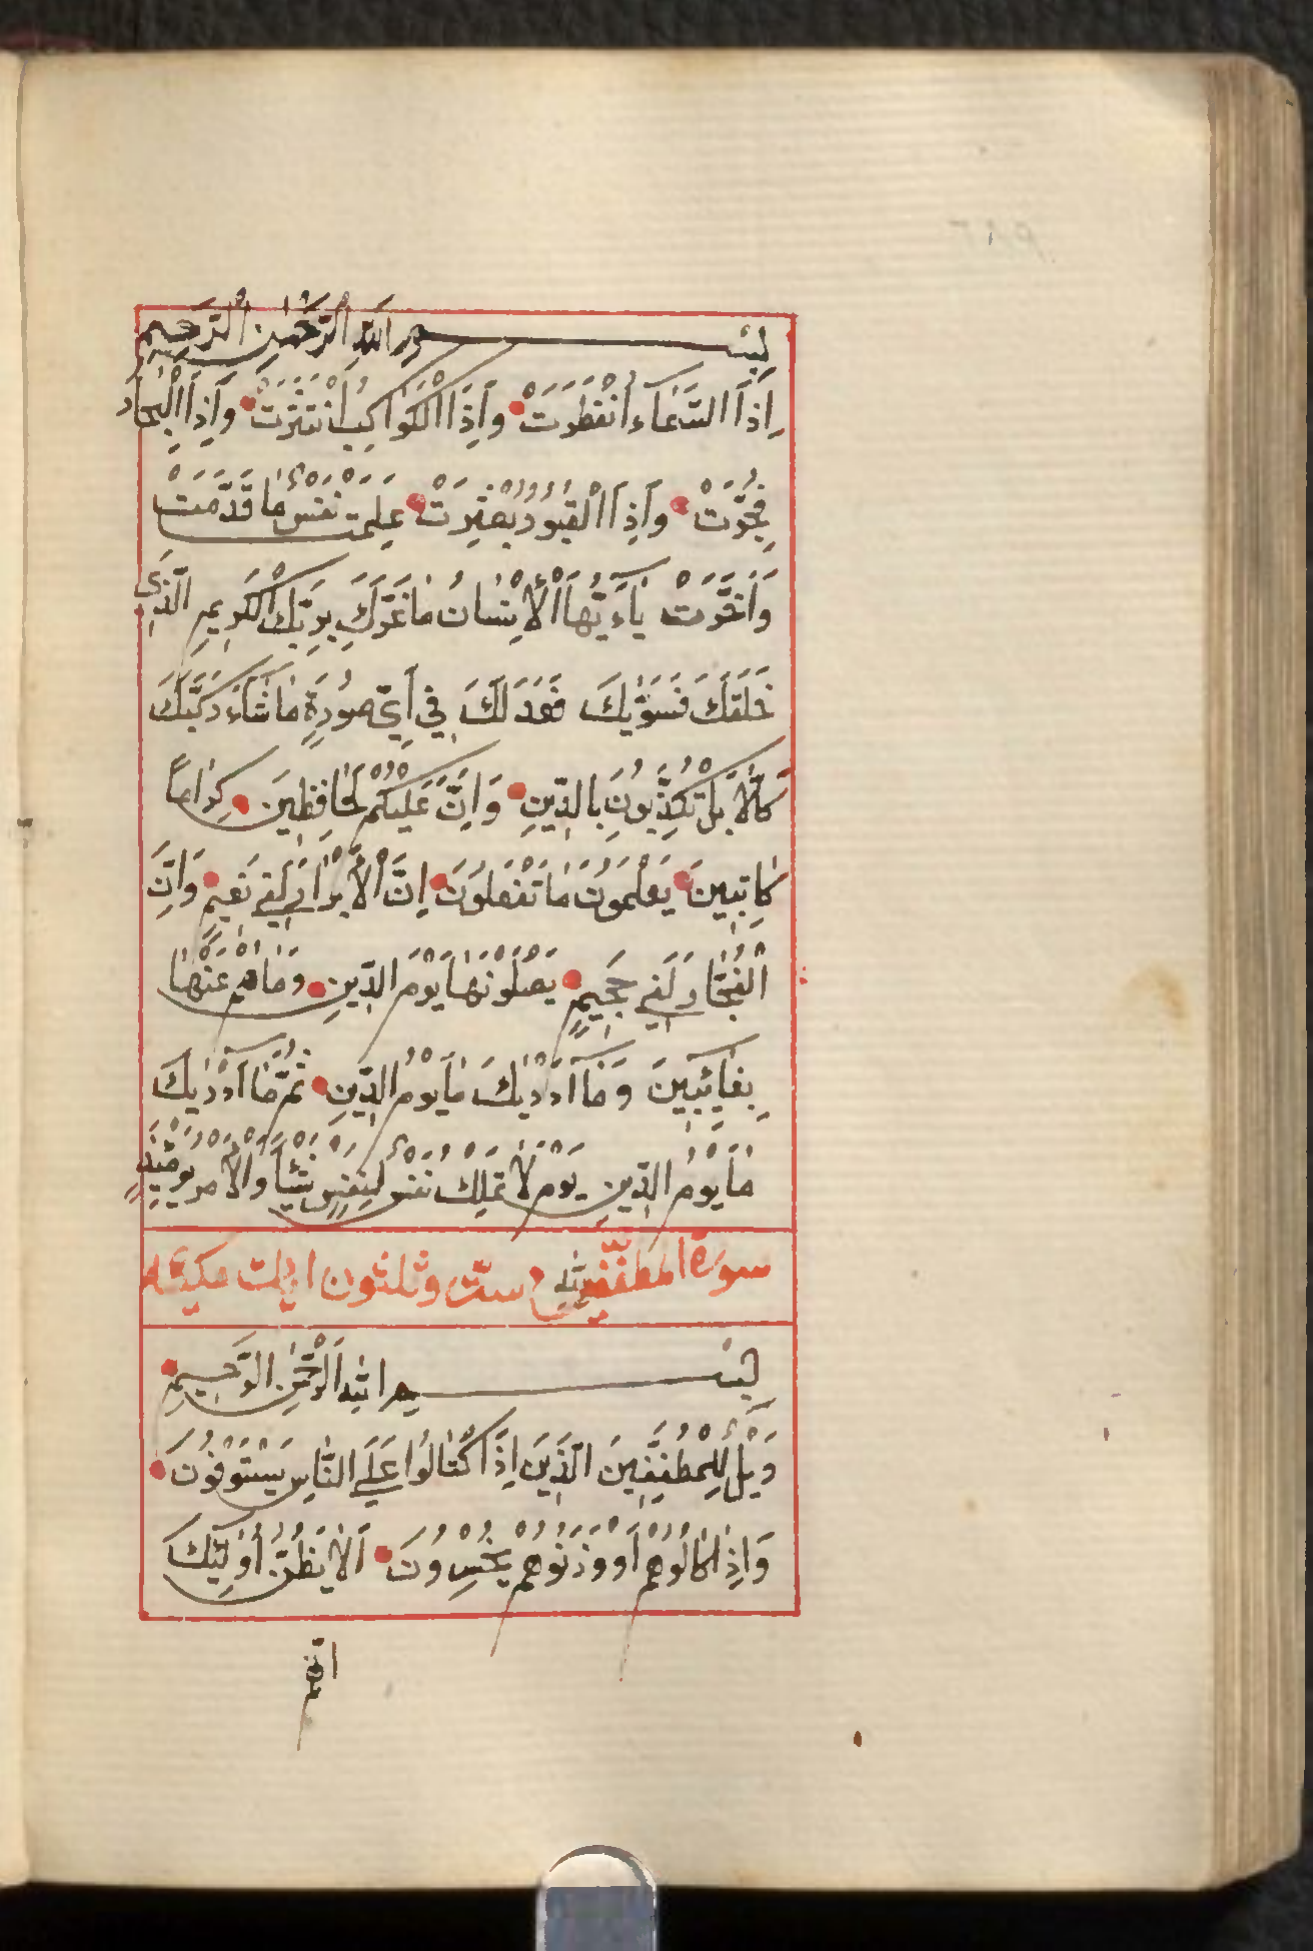 بِسْمِ اللهِ الرَّحْمٰنِ الرَّحِيمِ
اِذَا السَّمَاءُ انْفَطَرَتْ وَاِذَا الْكَوَاكِبُ انْتَثَرَتْ وَاِذَا الْبِحَارُ
فُجِّرَتْ وَاِذَا الْقُبُورُ بُعْثِرَتْ عَلِمَتْ نَفْسٌ مَا قَدَّمَتْ
وَاَخَّرَتْ يَاءَيُّهَا الْاِنْسَانُ مَا غَرَّكَ بِرَبِّكَ الْكَرِيمِ الَّذِي
خَلَقَكَ فَسَوّٰيكَ فَعَدَلَكَ فِي اَيِّ صُورَةٍ مَا شَاءَ رَكَّبَكَ
كَلَّا بَلْ تُكَذِّبُونَ بِالدِّينِ وَاِنَّ عَلَيْكُمْ لَحَافِظِينَ كِرَامًا
كَاتِبِينَ يَعْلَمُونَ مَا تَفْعَلُونَ اِنَّ الْاَبْرَارَ لَفِي نَعِيمٍ وَاِنَّ
الْفُجَّارَ لَفِي جَحِيمٍ يَصْلَوْنَهَا يَوْمَ الدِّينِ وَمَا هُمْ عَنْهَا
بِغَائِبِينَ وَمَا اَدْرٰيكَ مَا يَوْمُ الدِّينِ ثُمَّ مَا اَدْرٰيكَ
مَا يَوْمُ الدِّينِ يَوْمَ لَا تَمْلِكُ نَفْسٌ لِنَفْسٍ شَيْئًا وَالْاَمْرُ يَوْمَئِذٍ لِلّٰهِ
سورة المطففين ستّ وثلثون ايات مكيّه
بِسْمِ اللهِ الرَّحْمٰنِ الرَّحِيمِ
وَيْلٌ لِلْمُطَفِّفِينَ الَّذِينَ اِذَا اكْتَالُوا عَلَى النَّاسِ يَسْتَوْفُونَ
وَاِذَا كَالُوهُمْ اَوْ وَزَنُوهُمْ يُخْسِرُونَ اَلَا يَظُنُّ اُولٰئِكَ
انّهم